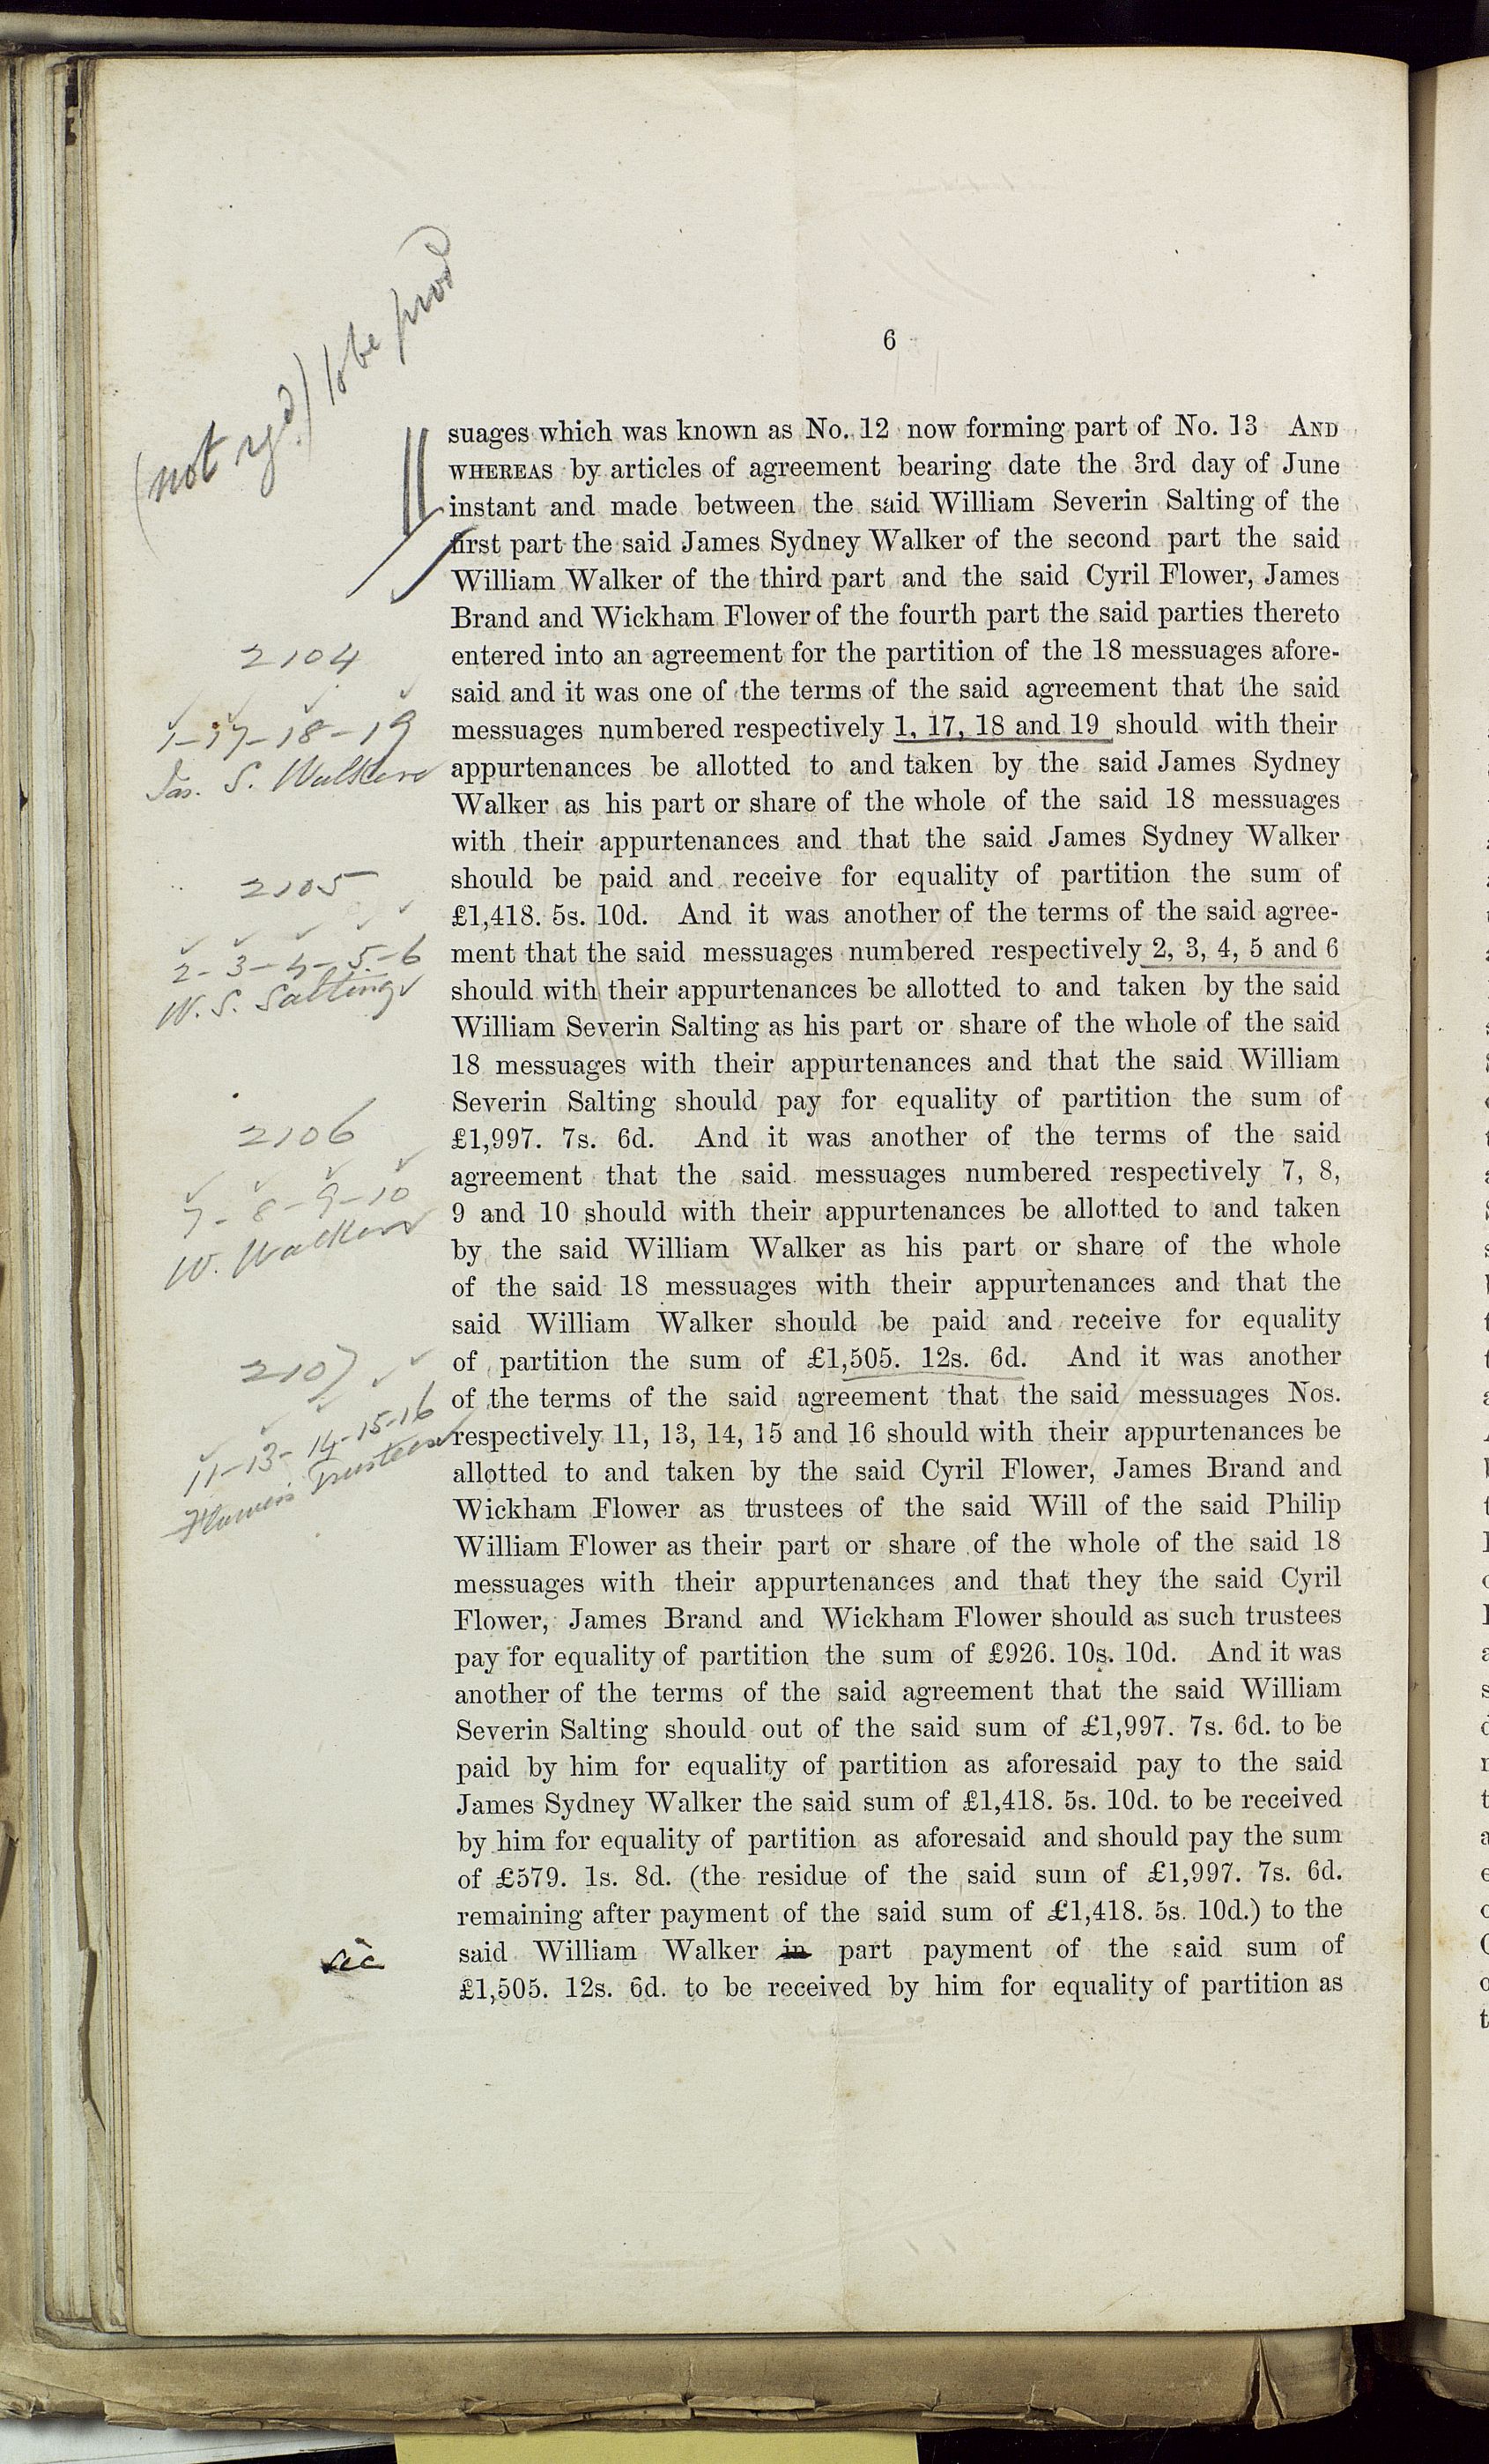 6
(not rgd.) to be prod
suages which was known as No. 12 now forming part of No. 13 AND
WHEREAS by articles of agreement bearing date the 3rd day of June
instant and made between the said William Severin Salting of the
first part the said James Sydney Walker of the second part the said
William Walker of the third part and the said Cyril Flower, James
Brand and Wickham Flower of the fourth part the said parties thereto
entered into an agreement for the partition of the 18 messuages afore-
said and it was one of the terms of the said agreement that the said
messuages numbered respectively 1, 17, 18 and 19 should with their
appurtenances be allotted to and taken by the said James Sydney
Walker as his part or share of the whole of the said 18 messuages
with their appurtenances and that the said James Sydney Walker
should be paid and receive for equality of partition the sum of
£1,418. 5s. 10d. And it was another of the terms of the said agree-
ment that the said messuages numbered respectively 2, 3, 4, 5 and 6
should with their appurtenances be allotted to and taken by the said
William Severin Salting as his part or share of the whole of the said
18 messuages with their appurtenances and that the said William
Severin Salting should pay for equality of partition the sum of
£1,997. 7s. 6d. And it was another of the terms of the said
agreement that the said messuages numbered respectively 7, 8,
9 and 10 should with their appurtenances be allotted to and taken
by the said William Walker as his part or share of the whole
of the said 18 messuages with their appurtenances and that the
said William Walker should be paid and receive for equality
of partition the sum of £1,505. 12s. 6d. And it was another
of the terms of the said agreement that the said messuages Nos.
respectively 11, 13, 14, 15 and 16 should with their appurtenances be
allotted to and taken by the said Cyril Flower, James Brand and
Wickham Flower as trustees of the said Will of the said Philip
William Flower as their part or share of the whole of the said 18
messuages with their appurtenances and that they the said Cyril
Flower, James Brand and Wickham Flower should as such trustees
pay for equality of partition the sum of £926. 10s. 10d. And it was
another of the terms of the said agreement that the said William
Severin Salting should out of the said sum of £1,997. 7s. 6d. to be
paid by him for equality of partition as aforesaid pay to the said
James Sydney Walker the said sum of £1,418. 5s. 10d. to be received
by him for equality of partition as aforesaid and should pay the sum
of £579. 1s. 8d. (the residue of the said sum of £1,997. 7s. 6d.
remaining after payment of the said sum of £1,418. 5s. 10d.) to the
said William Walker in part payment of the said sum of
£1,505. 12s. 6d. to be received by him for equality of partition as
2104
1-17-18-19
Jas. S. Walker
2105
2-3-4-5-6
W. S. Salting
2106
7-8-9-10
W. Walker
2107
11-13-14-15-16
Flower's Trustees
sic